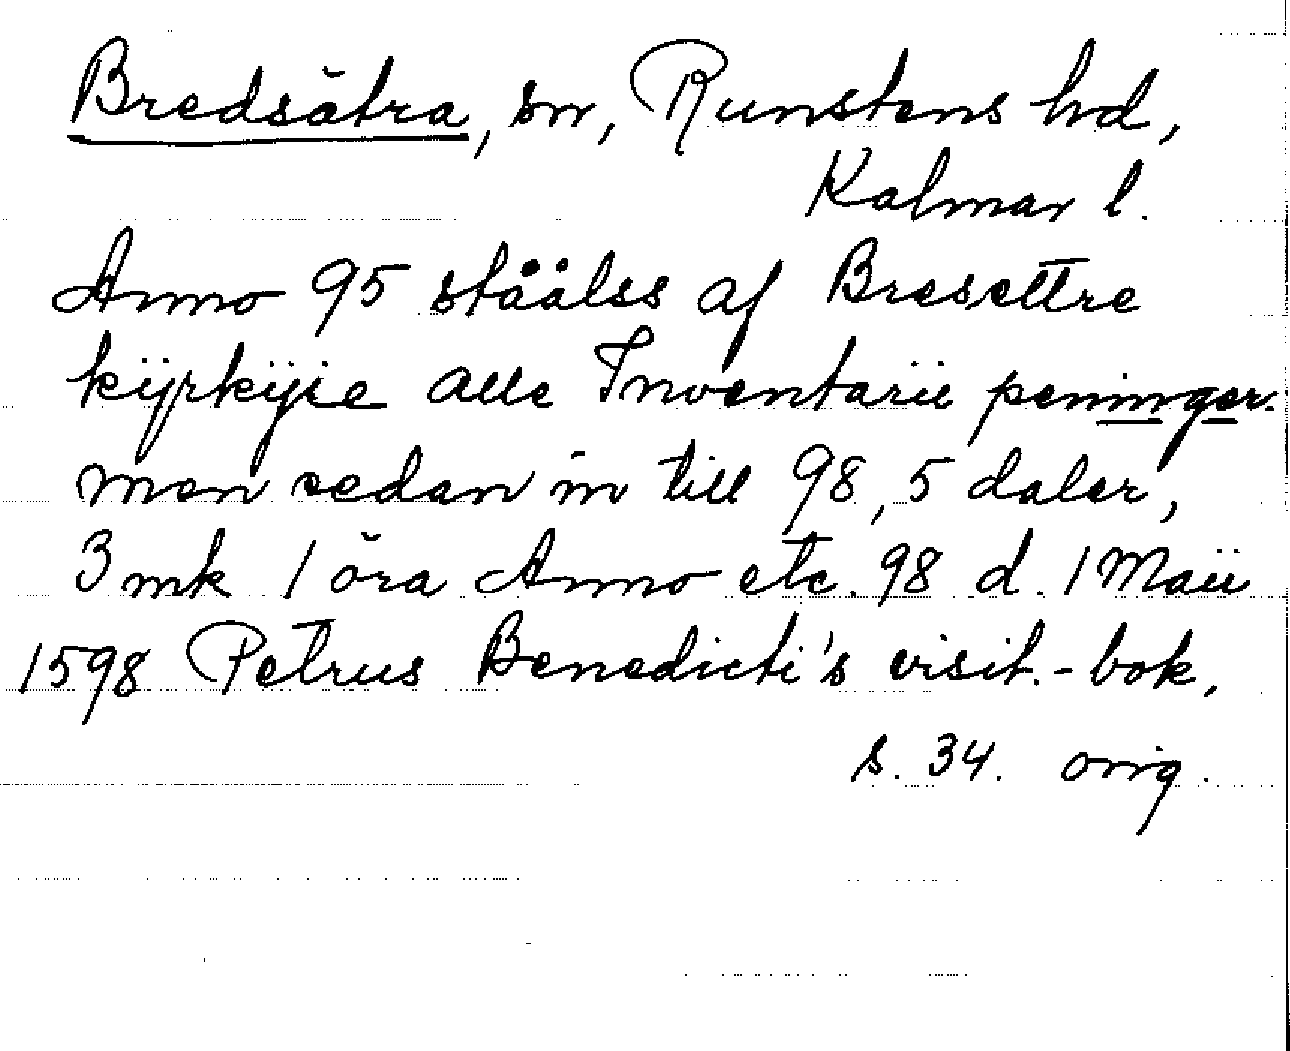 Bredsätra, sn, Runstens hd,
Kalmar l.
Anno 95 stååless af Bresettre
kÿrkÿie alle Inventarii peninger.
men sedan in till 98, 5 daler,
3 mk 1 öra Anno etc. 98 d. 1 Maii
1598 Petrus Benedicti's visit.-bok,
s. 34. orig.